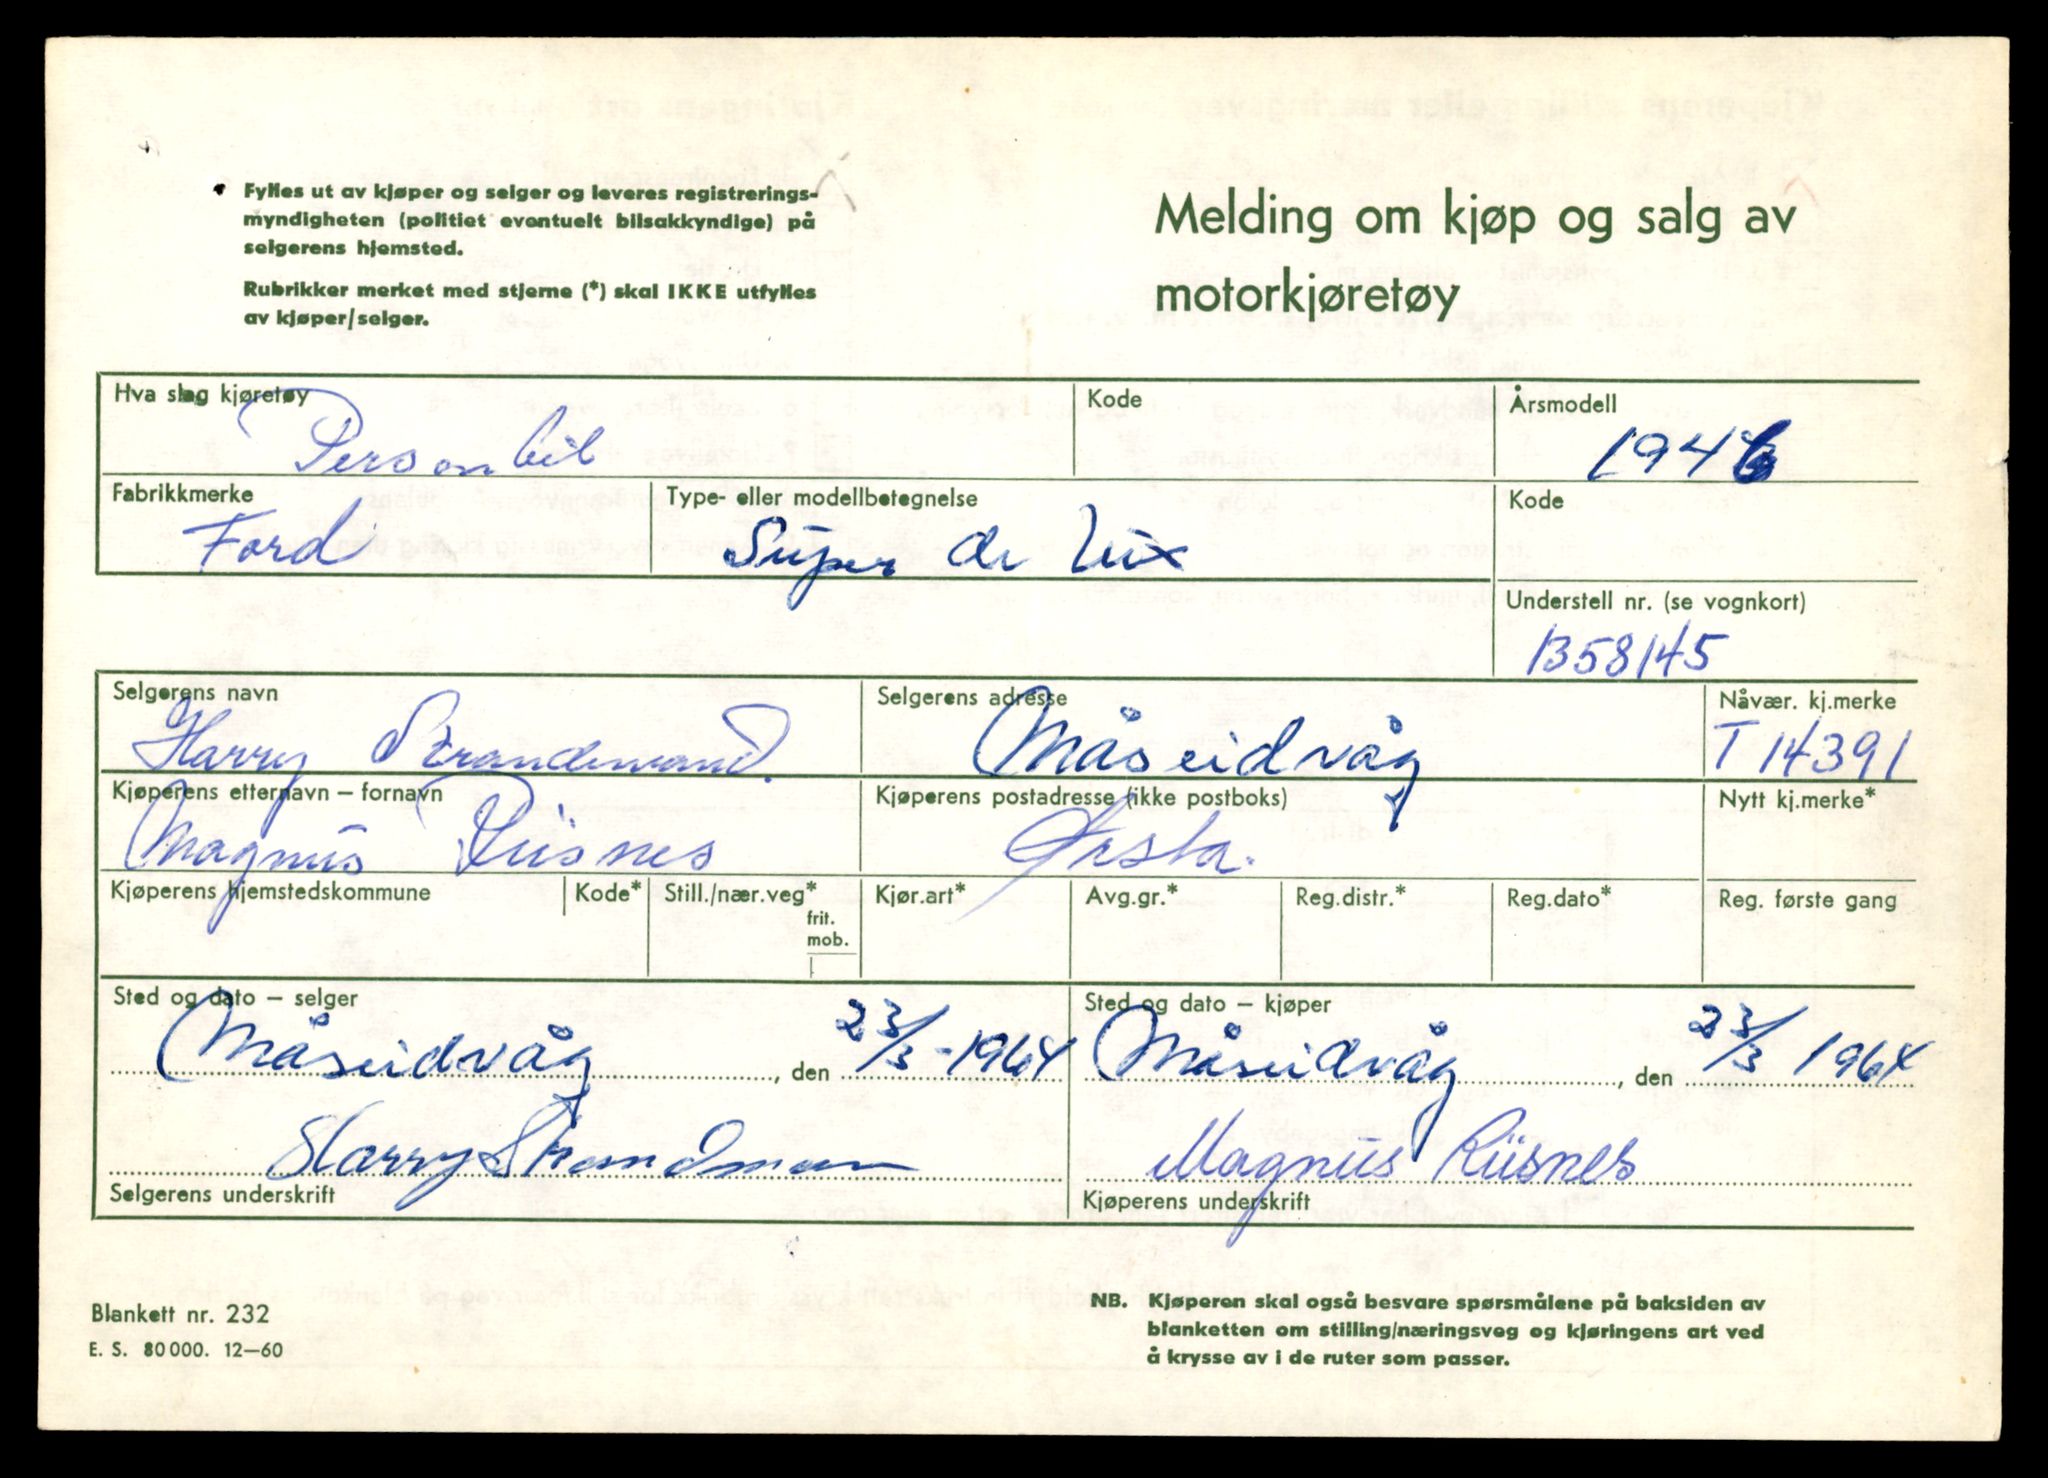 Fylles ut av kjøper og selger og leveres registrerings-
myndigheten (politiet eventuelt bilsakkyndige) på
selgerens hjemsted.
Rubrikker merket med stjerne (*) skal IKKE utfylles
av kjøper/selger.
Melding om kjøp og salg av
motorkjøretøy
Hva slag kjøretøy
Personbil
Kode
Årsmodell
1946
Fabrikkmerke
Ford
Type- eller modellbetegnelse
Super de lux
Kode
Understell nr. (se vognkort)
1358145
Selgerens navn
Harry Strandmand.
Selgerens adresse
Måseidvåg
Nåvær. kj.merke
T 14391
Kjøperens etternavn – fornavn
Magnus Riisnes
Kjøperens postadresse (ikke postboks)
Ørsta.
Nytt kj.merke*
Kjøperens hjemstedskommune
Kode*
Still./nær.veg*
frit.
mob.
Kjør.art*
Avg.gr.*
Reg.distr.*
Reg.dato*
Reg. første gang
Sted og dato – selger
Måseidvåg, den 23/3-1964
Harry Strandman
Selgerens underskrift
Sted og dato – kjøper
Måseidvåg, den 23/3 1964
Magnus Riisnes
Kjøperens underskrift
Blankett nr. 232
E. S. 80 000. 12–60
NB. Kjøperen skal også besvare spørsmålene på baksiden av
blanketten om stilling/næringsveg og kjøringens art ved
å krysse av i de ruter som passer.